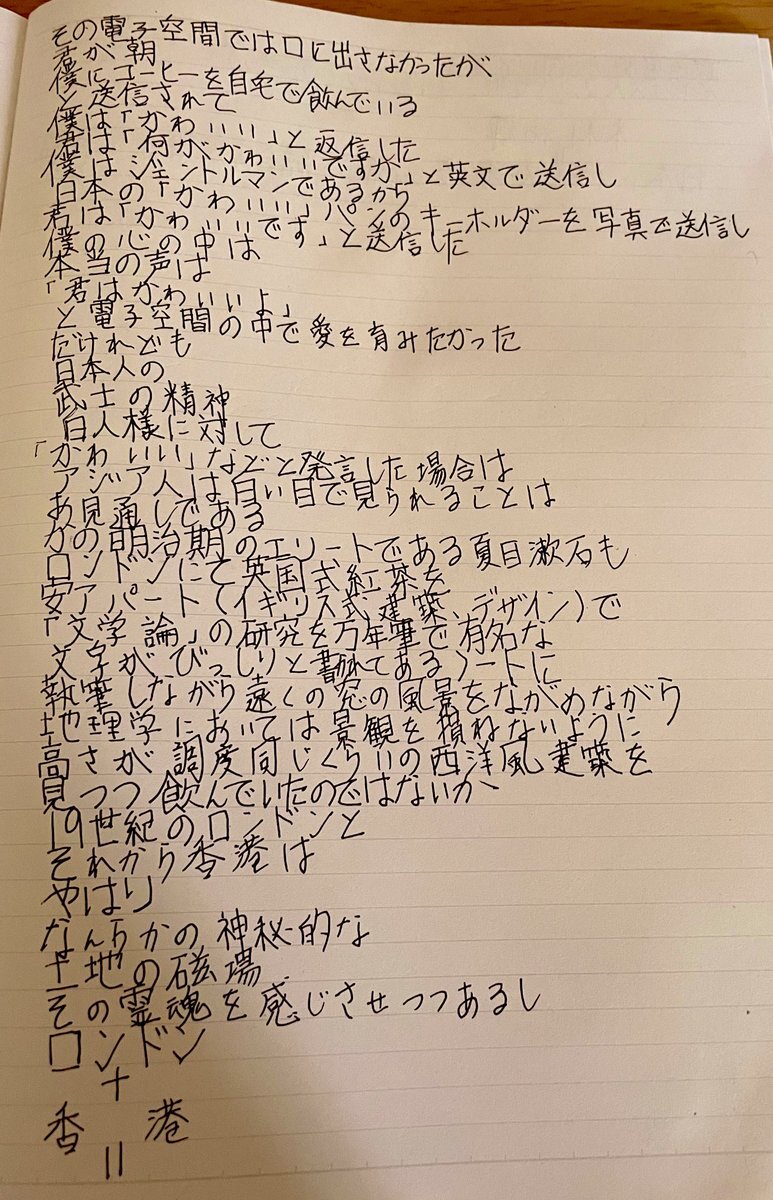 その電子空間では口に出さなかったが
君が朝
僕にコーヒーを自宅で飲んでいる
と送信されて
僕は「かわいい」と返信した
君は「何がかわいいですか」と英文で送信し
僕はジェントルマンであるから
日本の「かわいい」パンのキーホルダーを写真で送信し
君は「かわいいです」と送信した
僕の心の中は
本当の声は
「君はかわいいよ」
と電子空間の中で愛を育みたかった
だけれども
日本人の
武士の精神
白人様に対して
「かわいい」などと発言した場合は
アジア人は白い目で見られることは
お見通しである
かの明治期のエリートである夏目漱石も
ロンドンにて英国式紅茶を
安アパート(イギリス式建築、デザイン)で
「文学論」の研究を万年筆で有名な
文字がびっしりと書かれてあるノートに
執筆しながら遠くの窓の風景をながめながら
地理学においては景観を損ねないように
高さが調度同じくらいの西洋風建築を
見つつ飲んでいたのではないか
19世紀のロンドンと
それから香港は
やはり
なんらかの神秘的な
土地の磁場
その霊魂を感じさせつつあるし
ロンドン
+
香港
||